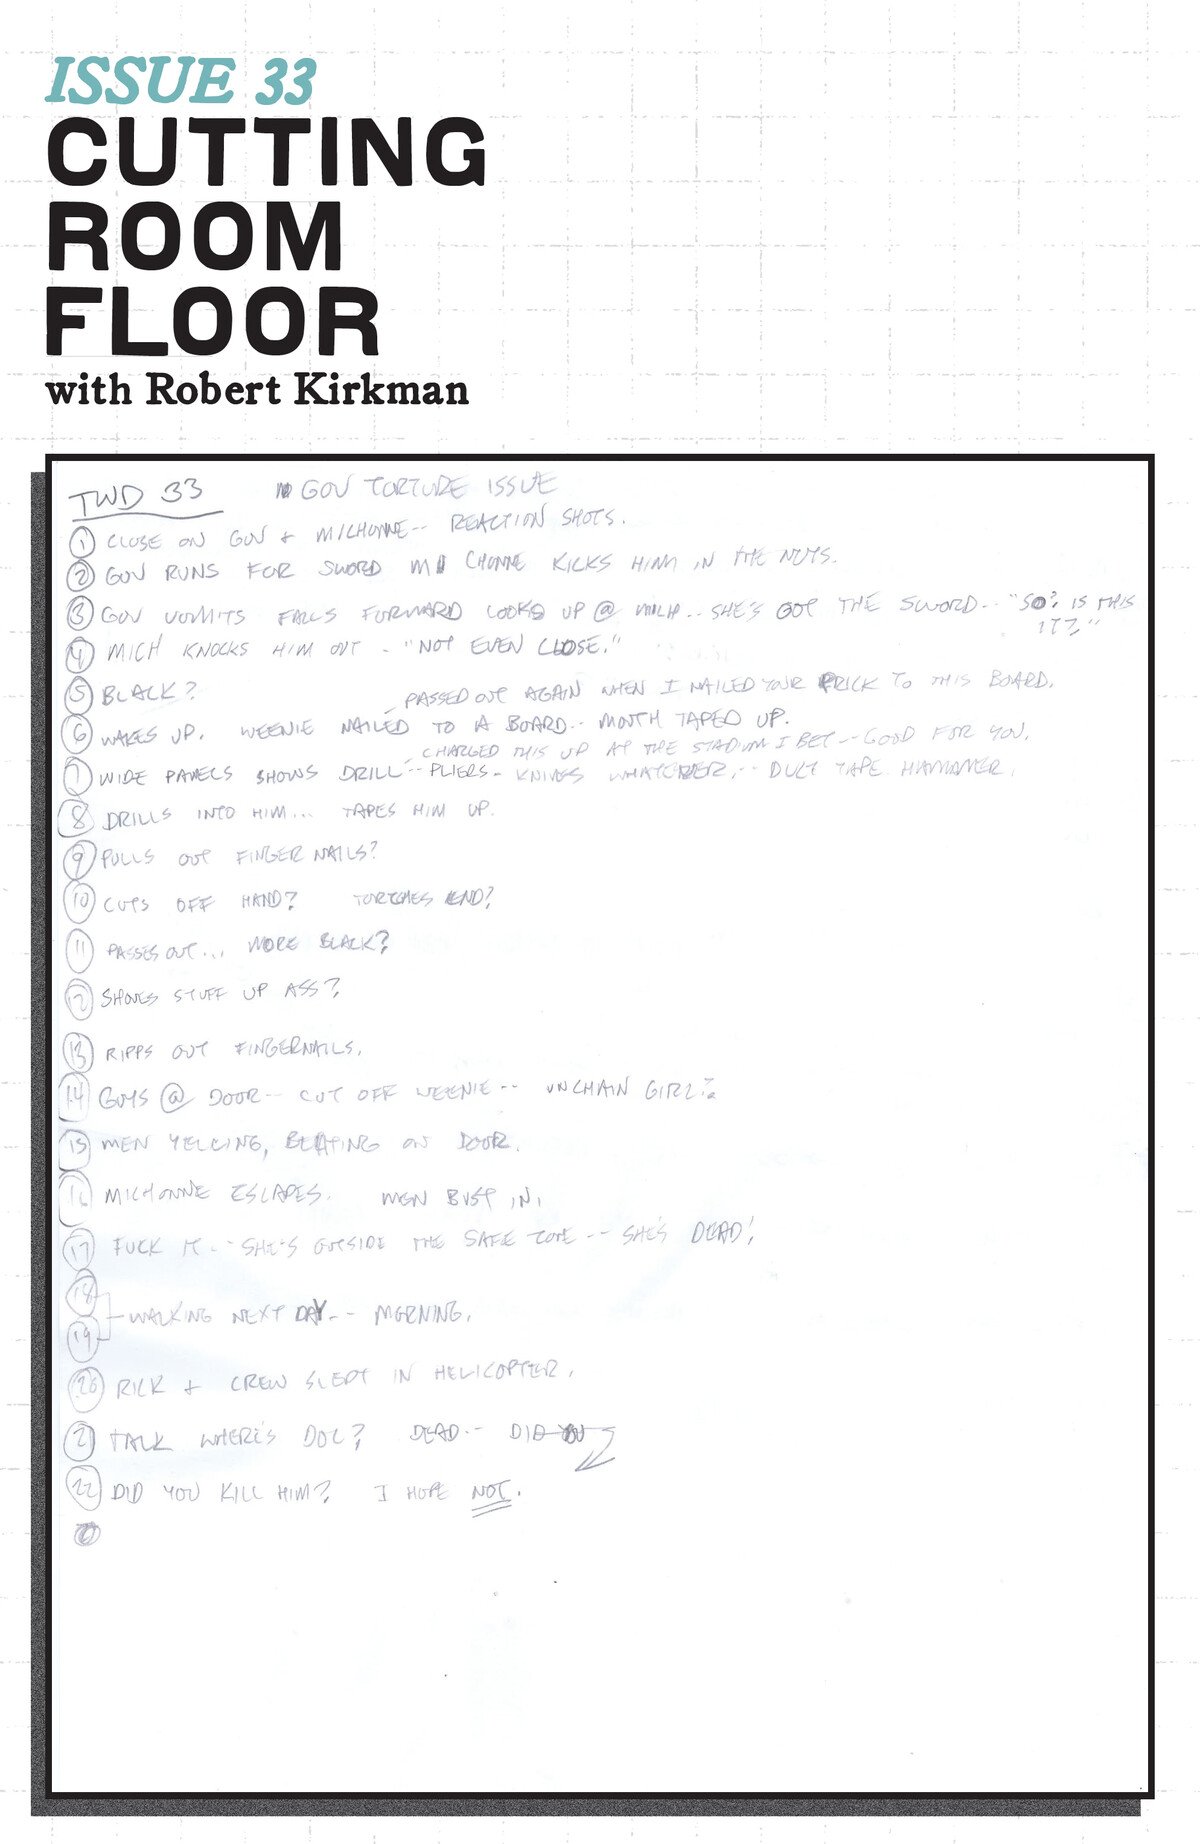 ISSUE 33
CUTTING
ROOM
FLOOR
with Robert Kirkman
TWD 33 GOV TORTURE ISSUE
1 CLOSE ON GOV + MICHONNE-- REACTION SHOTS.
2 GOV RUNS FOR SWORD MICHONNE KICKS HIM IN THE NUTS.
3 GOV VOMITS FALLS FORWARD LOOKS UP @ MICH.. SHE'S GOT THE SWORD.. "SO? IS THIS
IT?"
4 MICH KNOCKS HIM OUT - "NOT EVEN CLOSE."
5 BLACK?
PASSED OUT AGAIN WHEN I NAILED YOUR PRICK TO THIS BOARD.
6 WAKES UP. WEENIE NAILED TO A BOARD.. MOUTH TAPED UP.
CHARGED THIS UP AT THE STADIUM I BET-- GOOD FOR YOU.
7 WIDE PANELS SHOWS DRILL-- PLIERS- KNIVES WHATEVER,-- DUCT TAPE HAMMER.
8 DRILLS INTO HIM... TAPES HIM UP.
9 PULLS OUT FINGER NAILS?
10 CUTS OFF HAND? TORCHES END?
11 PASSES OUT... MORE BLACK?
12 SHOVES STUFF UP ASS?
13 RIPPS OUT FINGERNAILS.
14 GUYS @ DOOR-- CUT OFF WEENIE-- UNCHAIN GIRL?
15 MEN YELLING, BEATING ON DOOR.
16 MICHONNE ESCAPES. MEN BUST IN.
17 FUCK IT-- SHE'S OUTSIDE THE SAFE ZONE-- SHE'S DEAD!
18
WALKING NEXT DAY-- MORNING.
19
20 RICK + CREW SLEPT IN HELICOPTER.
21 TALK WHERE'S DOC? DEAD-- DID YOU
22 DID YOU KILL HIM? I HOPE NOT.